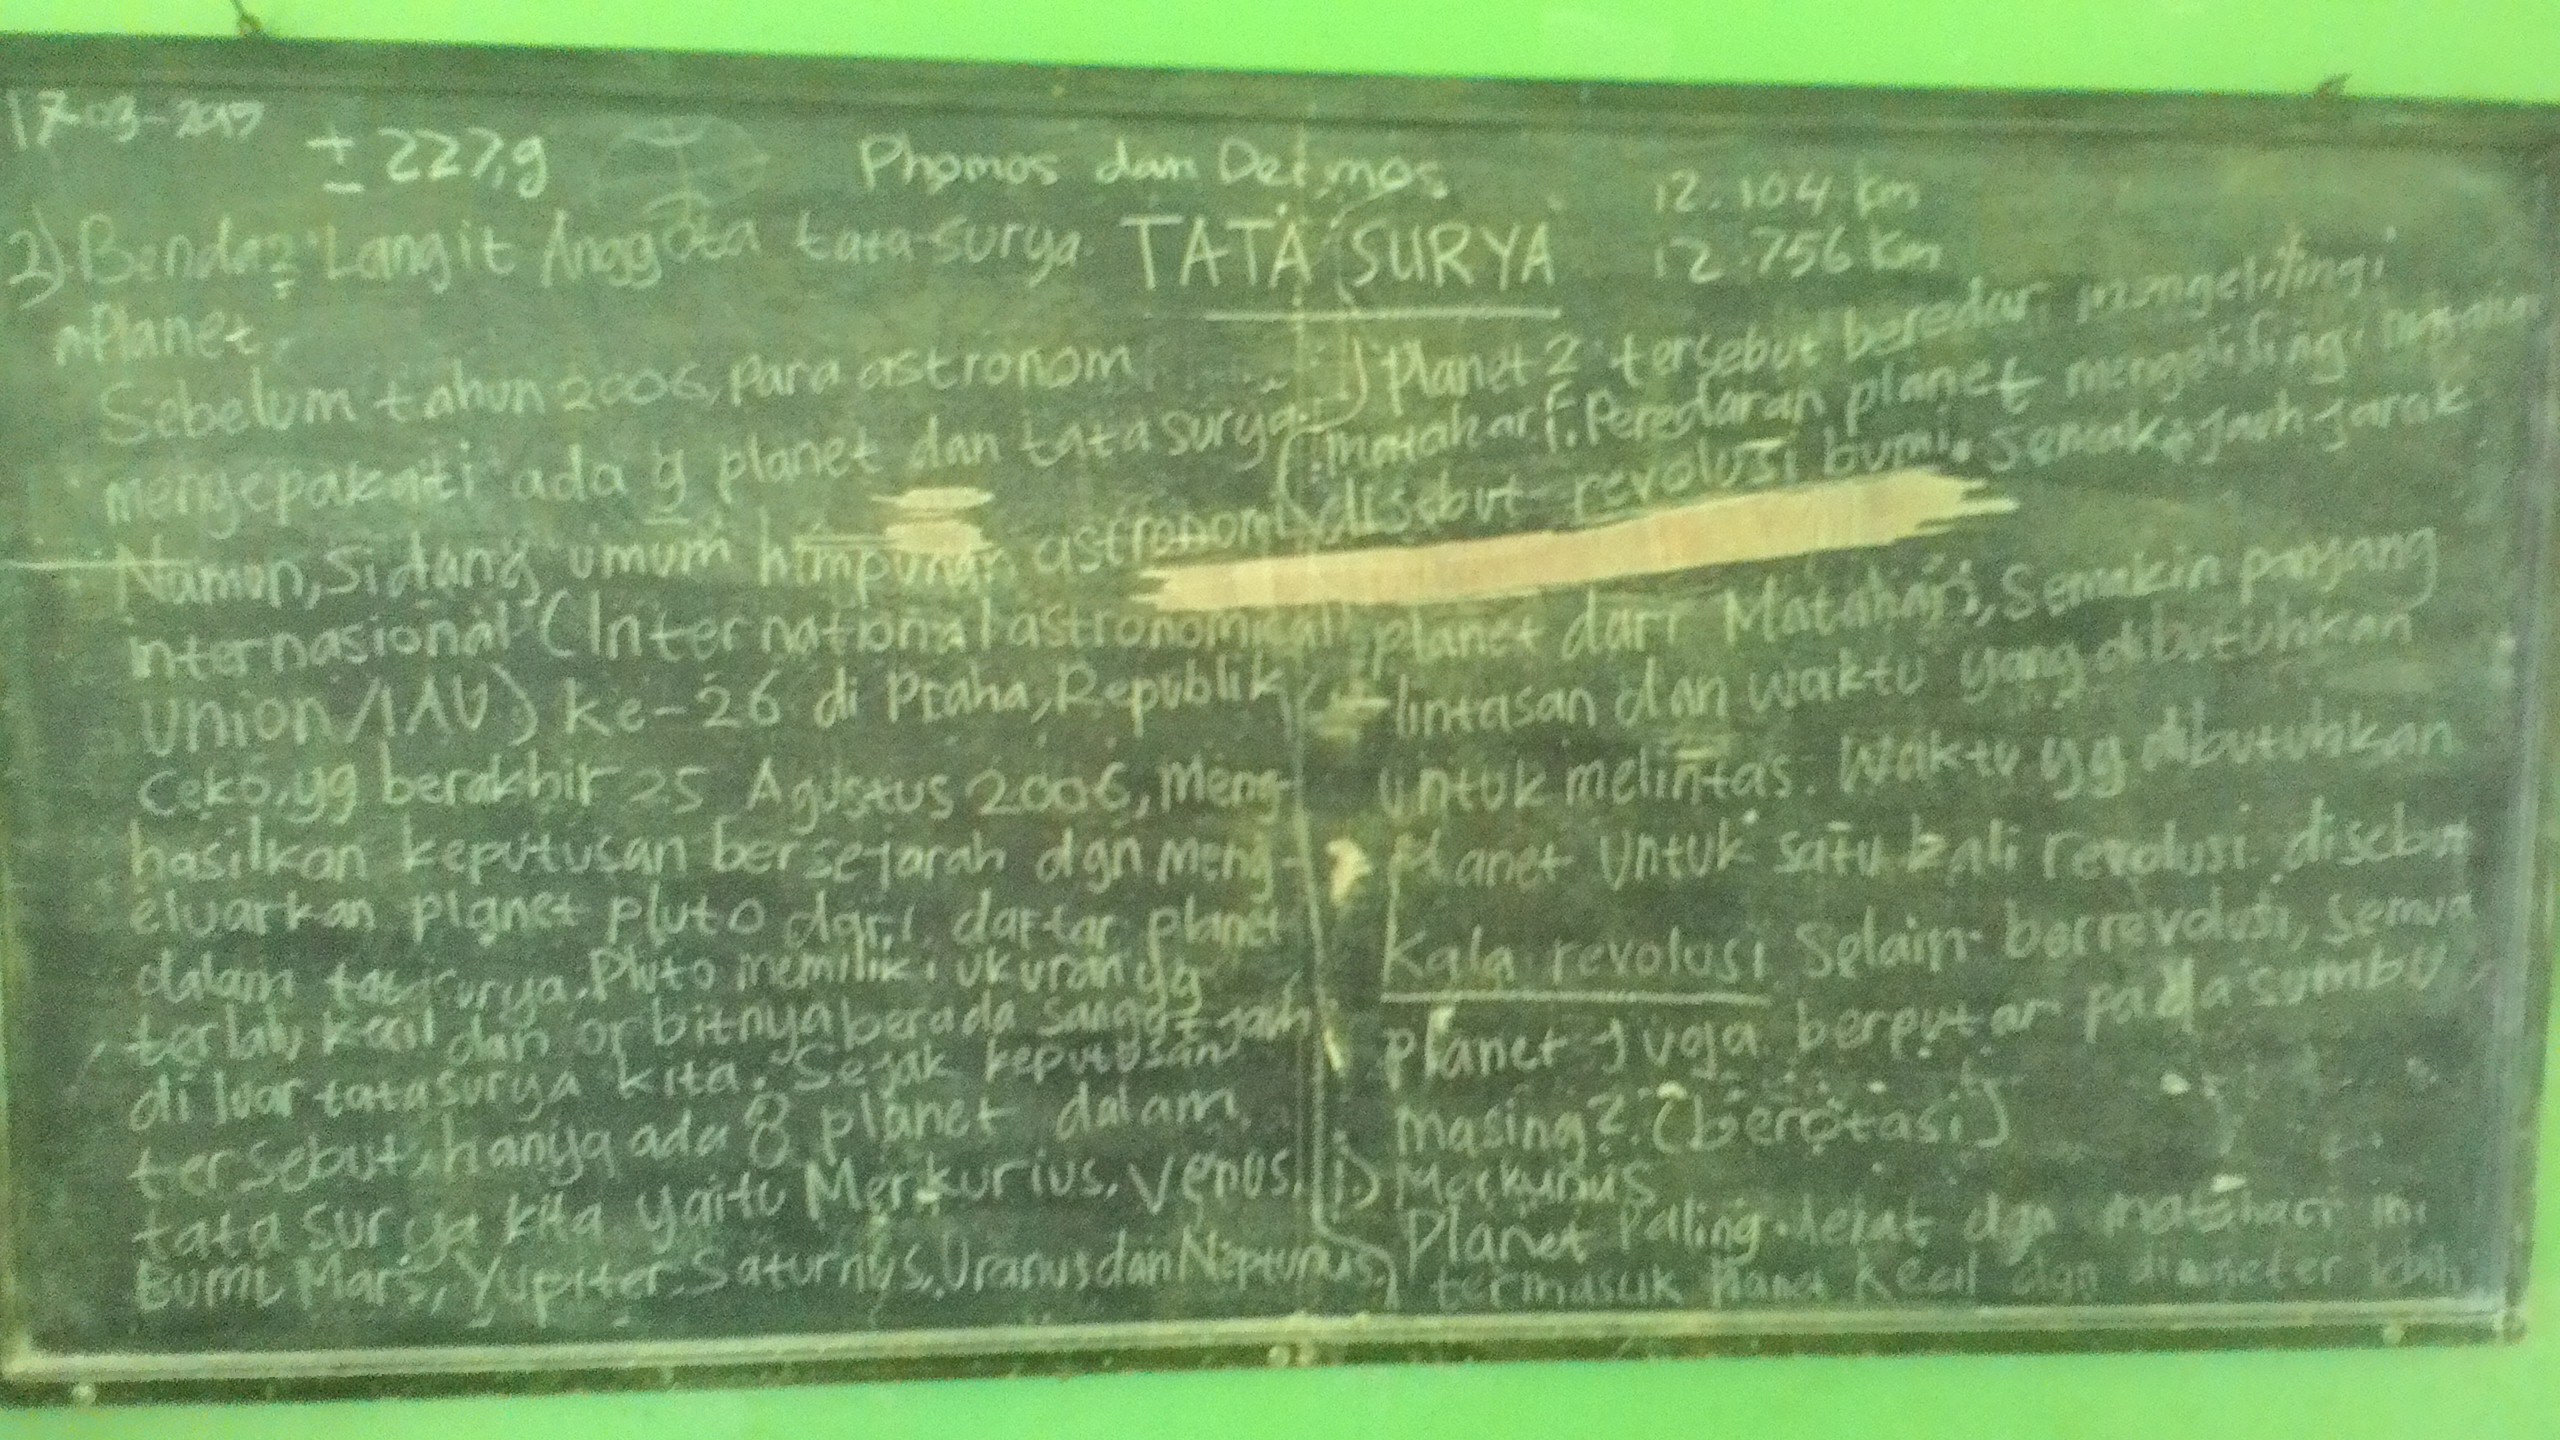 17-03-2017
± 227,9
Phomos dan Deimos
12.104 km
12.756 km
TATA SURYA
2) Benda2 Langit Anggota tata surya
Planet
Sebelum tahun 2006, para astronom
mengepakati ada 9 planet dan tata surya.
Namun, Sidang umum himpunan astronomi
internasional (International astronomical
Union/IAU) ke-26 di Praha, Republik
Ceko, yg berakhir 25 Agustus 2006, meng-
hasilkan keputusan bersejarah dgn meng-
eluarkan planet pluto dari daftar planet
dalam tata surya. Pluto memiliki ukuran yg
terlalu kecil dan orbitnya berada sangat jauh
di luar tata surya kita. Sejak keputusan
tersebut, hanya ada 8 planet dalam
tata surya kita yaitu Merkurius, Venus,
Bumi, Mars, Yupiter, Saturnus, Uranus dan Neptunus.
planet2 tersebut beredar mengelilingi
matahari. Peredaran planet mengelilingi
disebut revolusi bumi. Semakin jauh jarak
planet dari Matahari, Semakin panjang
lintasan dan waktu yang dibutuhkan
untuk melintas. Waktu yg dibutuhkan
planet untuk satu kali revolusi disebut
Kala revolusi. Selain berrevolusi, semua
planet juga berputar pada sumbu
masing2. (berotasi)
i) Merkurius
Planet Paling dekat dgn matahari ini
termasuk planet kecil dgn diameter